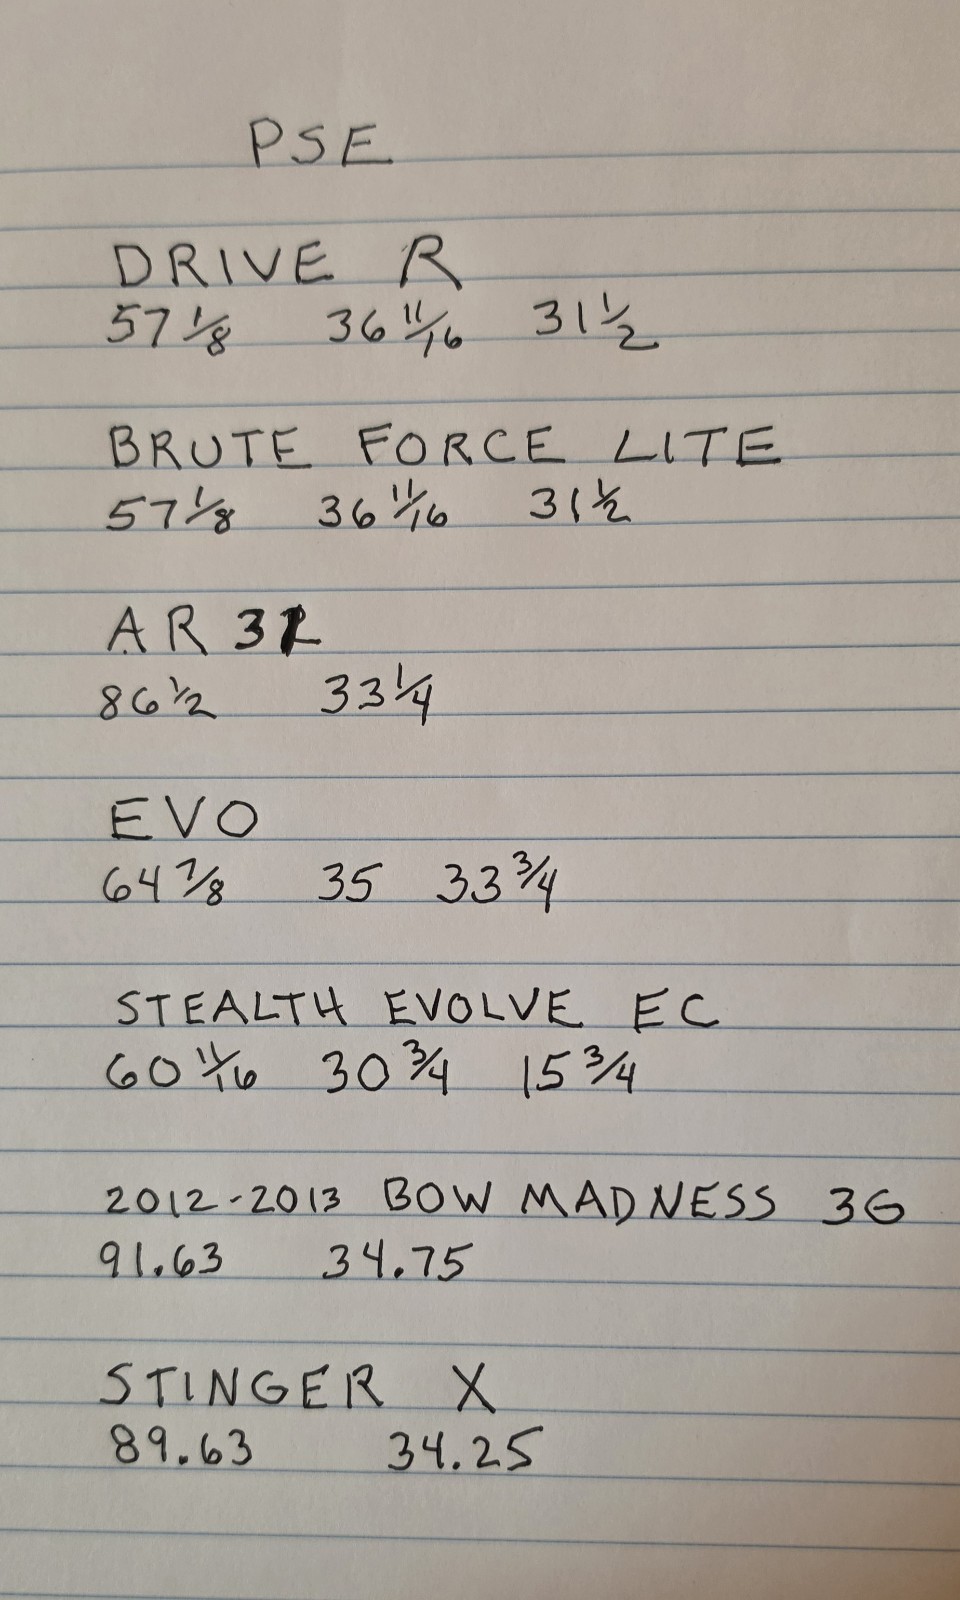 PSE
DRIVE R
57 1/8 36 11/16 31 1/2
BRUTE FORCE LITE
57 1/8 36 11/16 31 1/2
AR
86 1/2 33 1/4
EVO
64 7/8 35 33 3/4
STEALTH EVOLVE EC
60 11/16 30 3/4 15 3/4
2012-2013 BOW MADNESS 3G
91.63 34.75
STINGER X
89.63 34.25